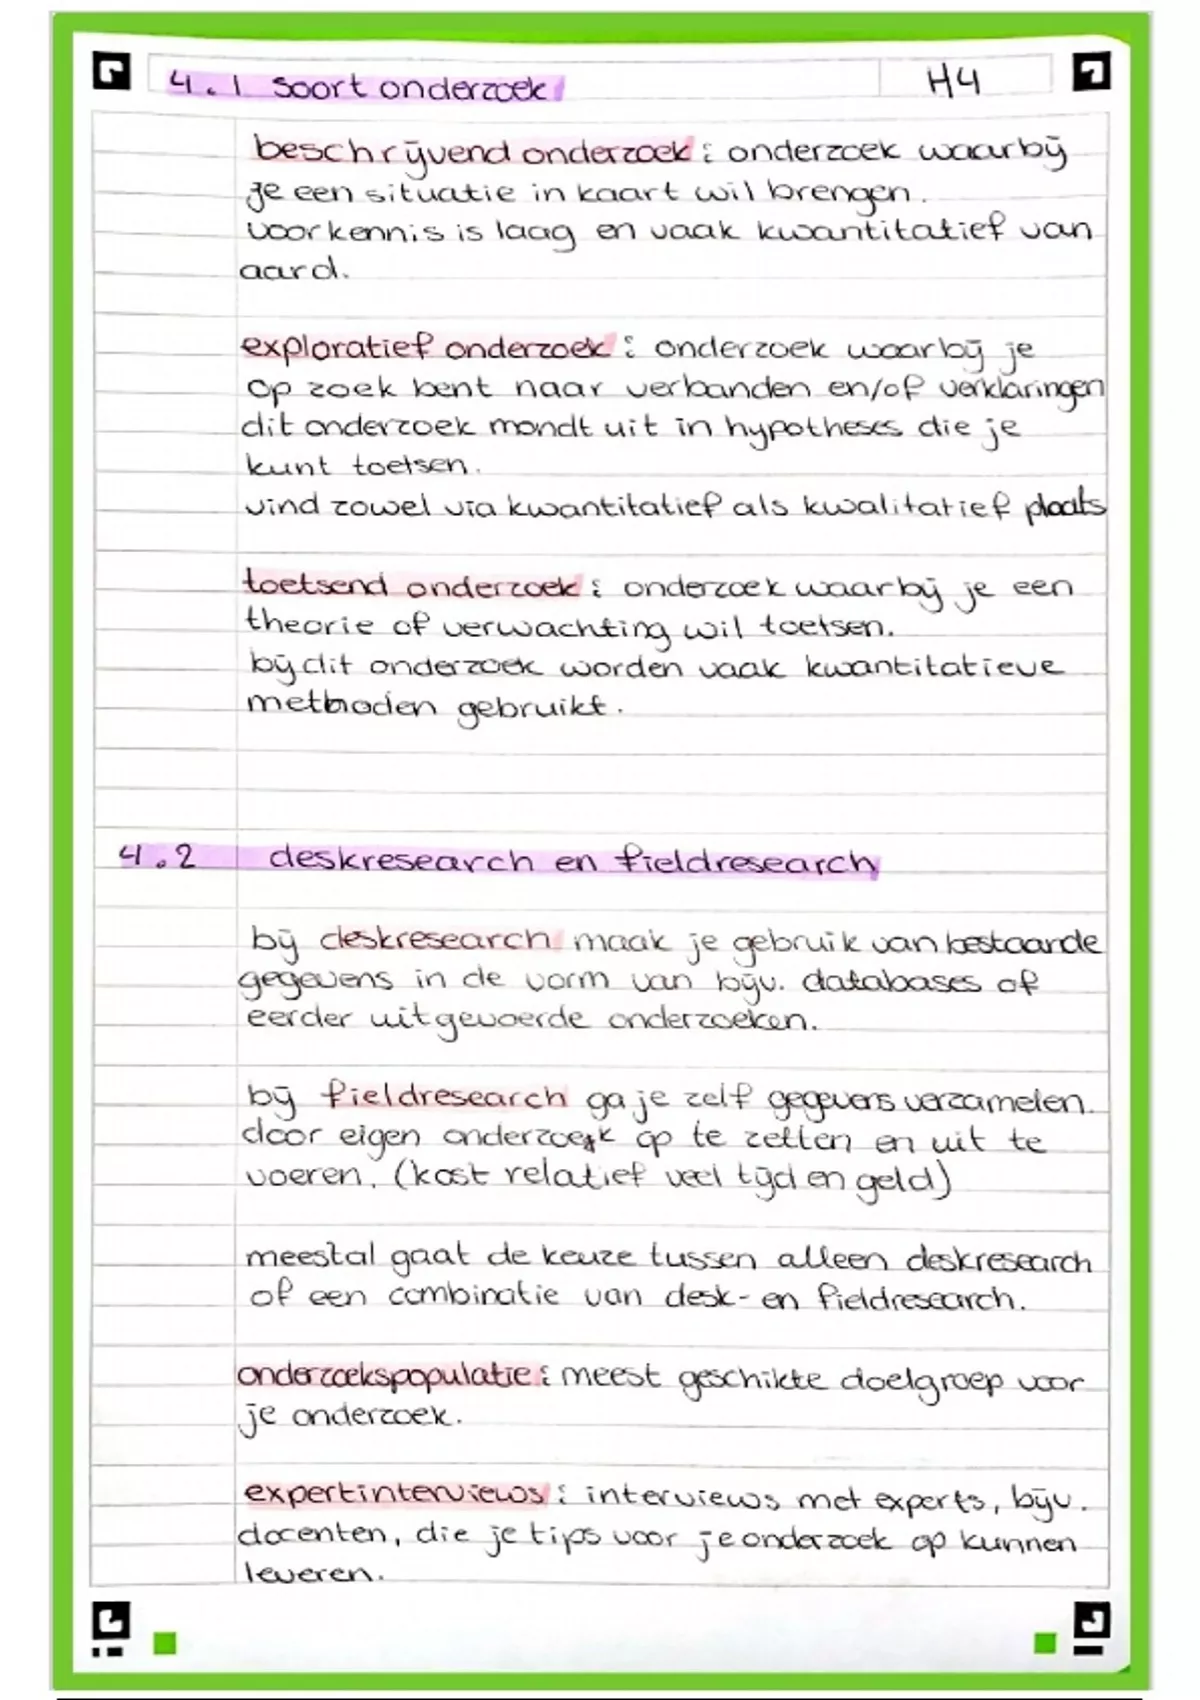 4.1 soort onderzoek
H4
beschrijvend onderzoek : onderzoek waarbij
je een situatie in kaart wil brengen.
voorkennis is laag en vaak kwantitatief van
aard.
exploratief onderzoek : onderzoek waarbij je
op zoek bent naar verbanden en/of verklaringen
dit onderzoek mondt uit in hypotheses die je
kunt toetsen.
vind zowel via kwantitatief als kwalitatief plaats
toetsend onderzoek : onderzoek waarbij je een
theorie of verwachting wil toetsen.
bij dit onderzoek worden vaak kwantitatieve
methoden gebruikt.
4.2 deskresearch en fieldresearch
bij deskresearch maak je gebruik van bestaande
gegevens in de vorm van bijv. databases of
eerder uitgevoerde onderzoeken.
bij fieldresearch ga je zelf gegevens verzamelen.
door eigen onderzoek op te zetten en uit te
voeren. (kost relatief veel tijd en geld)
meestal gaat de keuze tussen alleen deskresearch
of een combinatie van desk- en fieldresearch.
onderzoekspopulatie : meest geschikte doelgroep voor
je onderzoek.
expertinterviews : interviews met experts, bijv.
docenten, die je tips voor je onderzoek op kunnen
leveren.